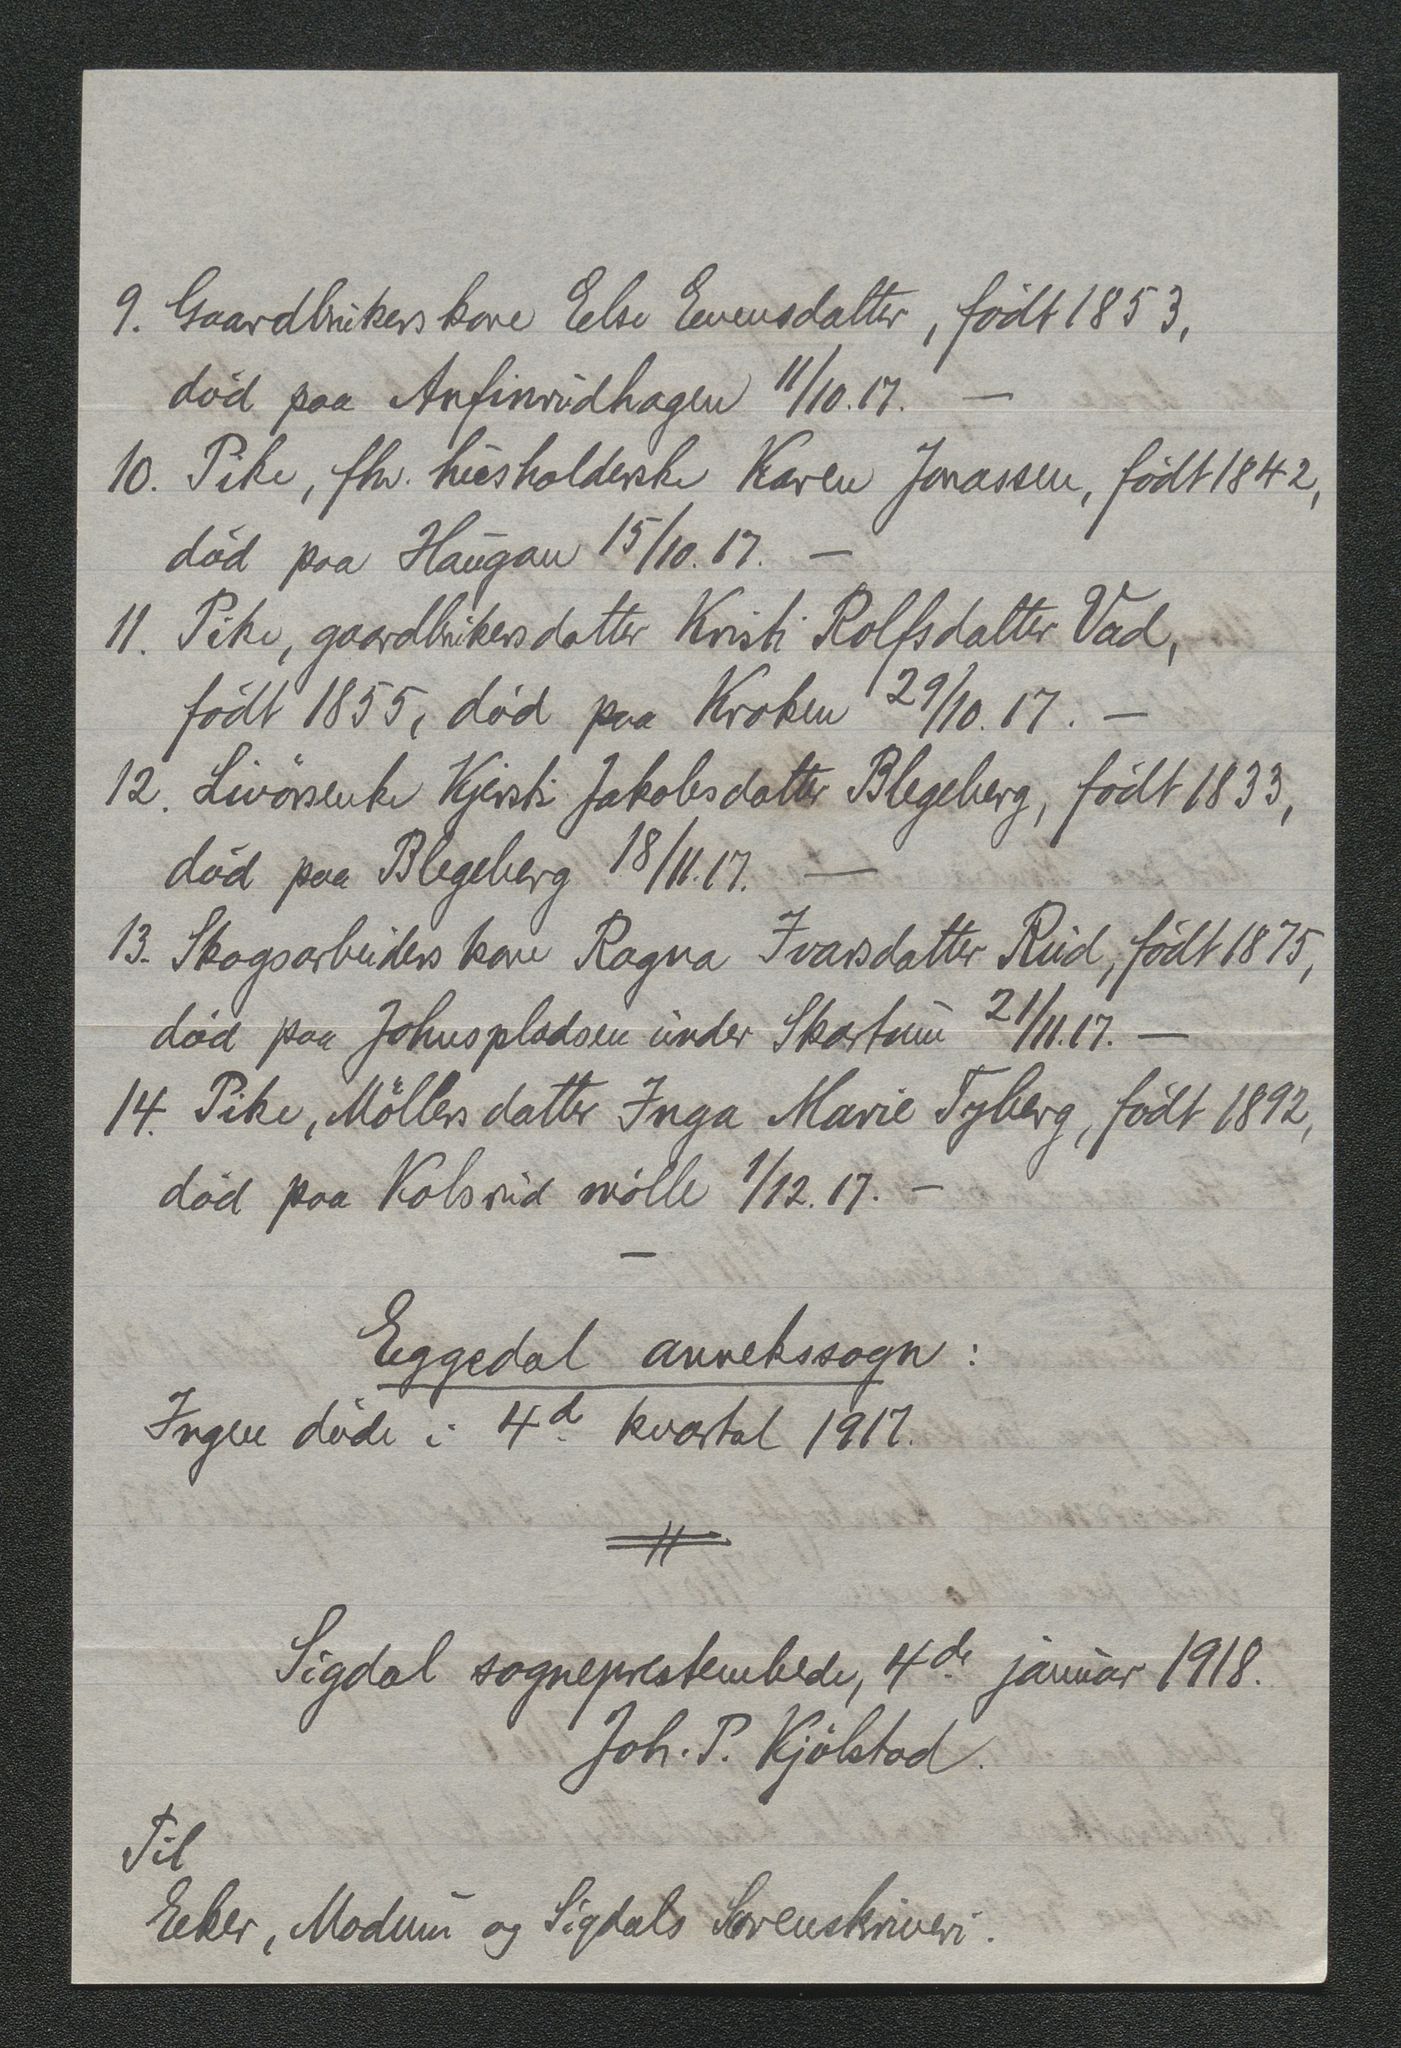 9. Gaardbrukers kone Else Evensdatter, födt 1853,
död paa Anfinrudhagen 11/10.17. —
10. Pike, fhv. husholderske Karen Jonassen, födt 1842,
död paa Haugan 15/10.17. —
11. Pike, gaardbrukersdatter Kristi Rolfsdatter Vad,
födt 1855, död paa Kroken 29/10.17. —
12. Livörsenke Kjersti Jakobsdatter Blegeberg, födt 1833,
död paa Blegeberg 18/11.17. —
13. Skogsarbeiders kone Ragna Ivarsdatter Rud, födt 1875,
död paa Johnspladsen under Skartum 21/11.17. —
14. Pike, Möllersdatter Inga Marie Tyberg, födt 1892,
död paa Kolsrud mölle 1/12.17. —
—
Eggedal annekssogn:
Ingen döde i 4d. kvartal 1917.
Sigdal sogneprestembede, 4de januar 1918.
Joh. P. Kjölstad.
Til
Eker, Modum og Sigdals Sorenskriveri.